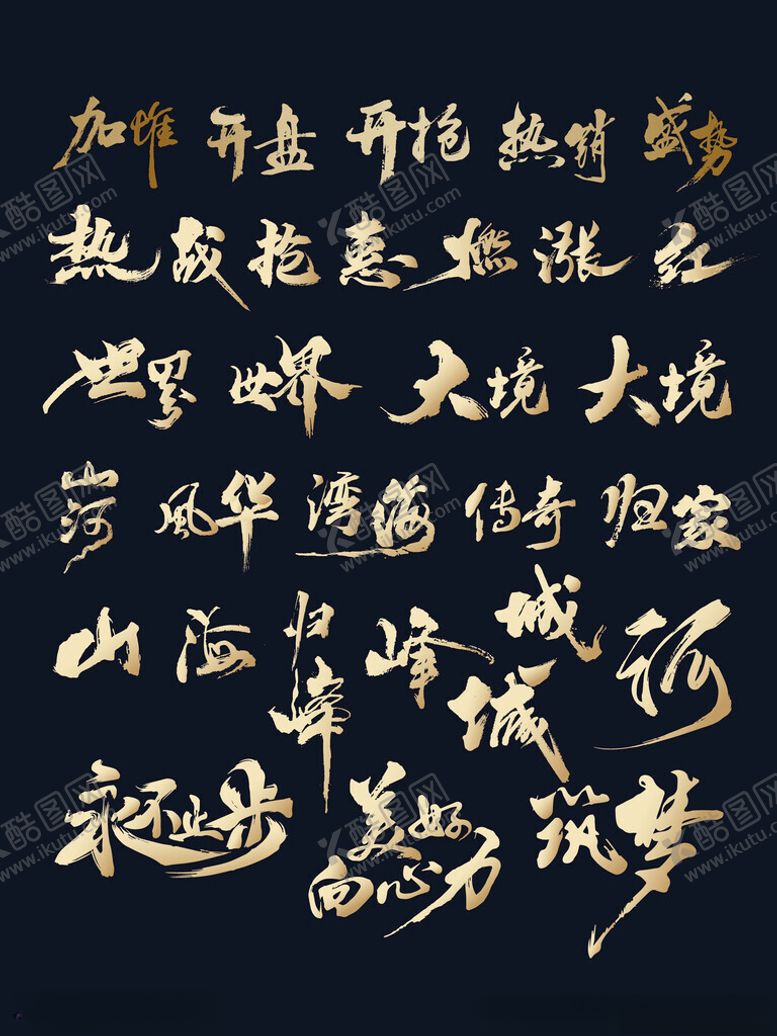 加推 开盘 开抢 热销 盛势
热 战 抢 惠 燃 涨 红
世界 世界 大境 大境
山河 風华 湾海 传奇 归家
山 海 归峰 峰 城 城 河
永不止步 美好向心力 筑梦
酷图网 www.ikutu.com